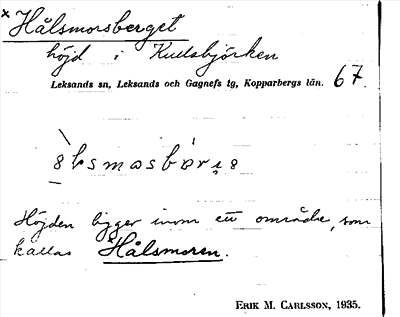 × Hålsmorsberget
höjd i Kullsbjörken
Leksands sn, Leksands och Gagnefs tg, Kopparbergs län. 67.
Höjden ligger inom ett område, som
kallas Hålsmoren.
ERIK M. CARLSSON, 1935.